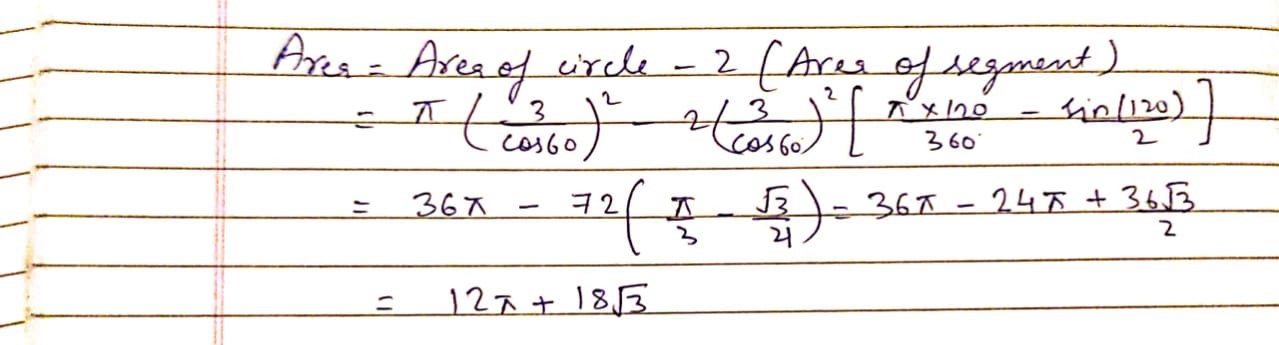 Area = Area of circle - 2 (Area of segment)
= π (3/cos60)² - 2(3/cos60)² [π×120/360 - sin(120)/2]
= 36π - 72(π/3 - √3/4) = 36π - 24π + 36√3/2
= 12π + 18√3